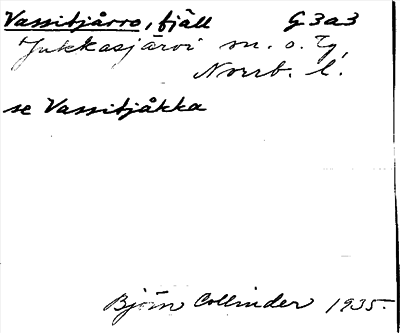 Vassitjårro, fjäll G 3a3
Jukkasjärvi sn. o. tg,
Norrb. l.
se Vassitjåkka
Björn Collinder 1935.